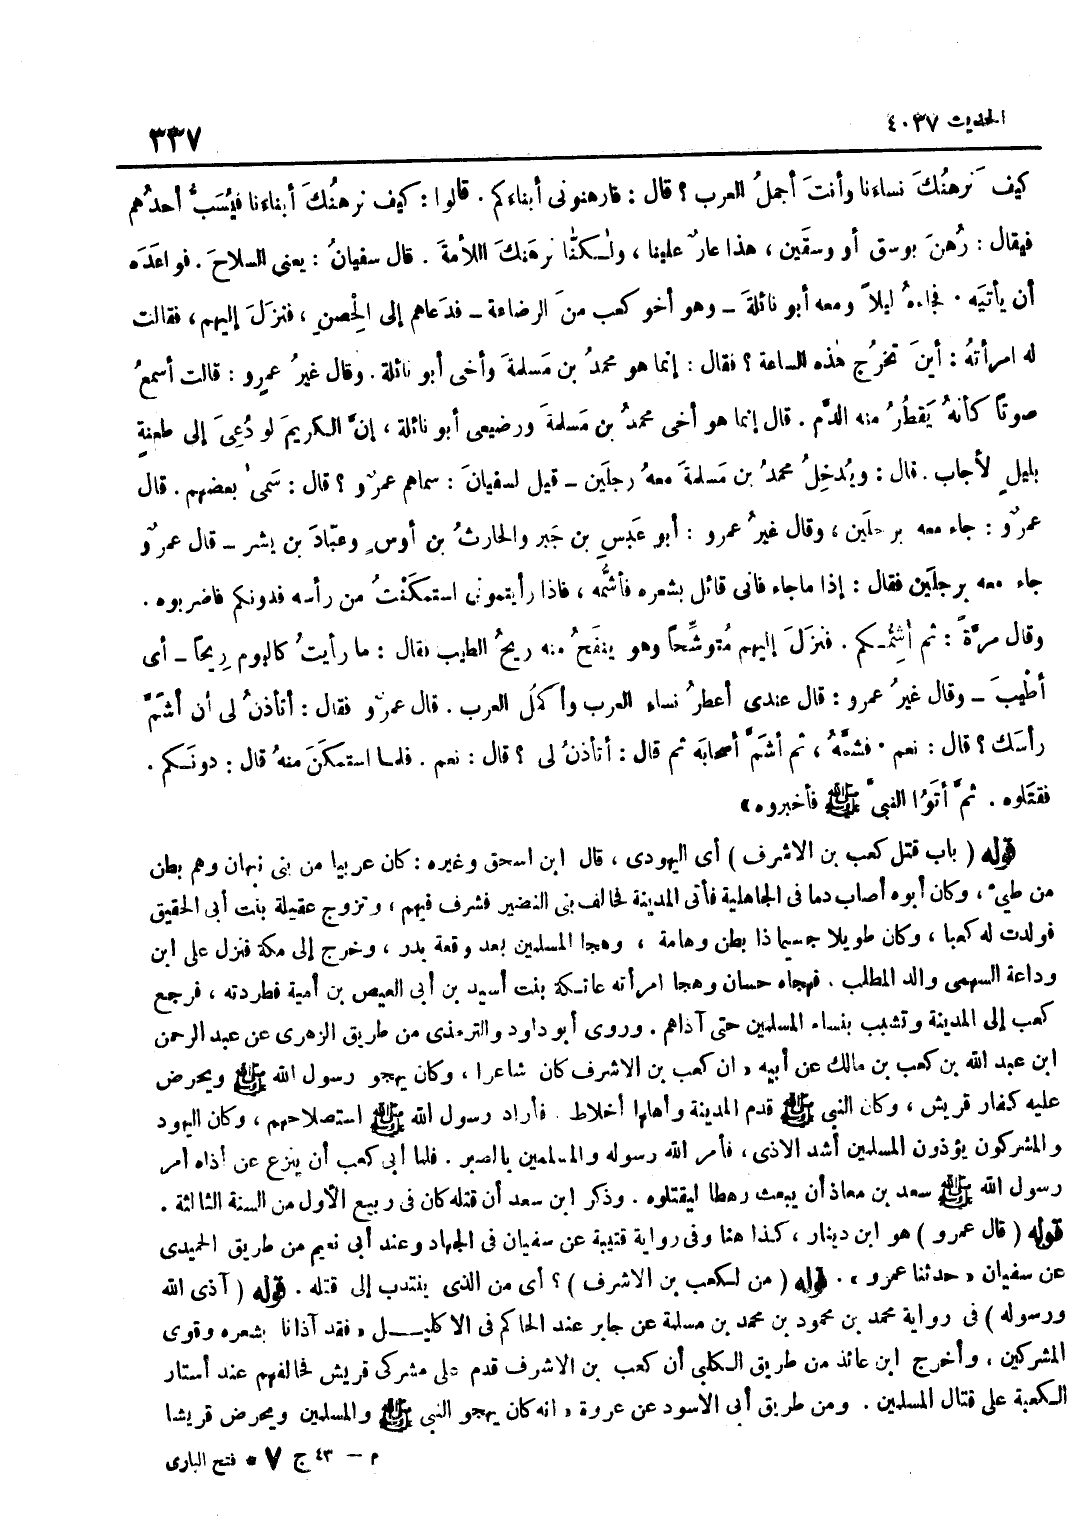 الحديث ٤٠٣٧
٣٣٧
كيف نَرهنُكَ نساءَنا وأنتَ أجملُ العرب ؟ قال : فارهنونى أبناءكم . قالوا : كيف نرهنُكَ أبناءنا فيُسَبُّ أحدُهم
فيقال : رُهنَ بوسق أو وسقَين ، هذا عارٌ علينا ، ولٰكنَّا نرهَنكَ اللأمةَ . قال سفيانُ : يعنى السلاحَ . فواعَدَه
أن يأتيَه . فجاءهُ ليلاً ومعه أبو نائلةَ – وهو أخو كعب منَ الرضاعة – فدَعاهم إلى الِحْصنِ ، فنزَلَ إليهم ، فقالت
له امرأتهُ : أينَ تخرُج هٰذه الساعة ؟ فقال : إنما هو محمدُ بن مَسلمةَ وأخى أبو نائلة . وقال غيرُ عمرو : قالت أسمعُ
صوتاً كأنهُ يَقطُرُ منه الدَّم . قال إنما هو أخى محمدُ بن مَسلمةَ ورضيعى أبو نائلة ، إنَّ الكريمَ لو دُعِىَ إلى طعنةٍ
بليلٍ لأجاب . قال : ويُدخِلُ محمدُ بن مَسلمةَ معهُ رجلَين – قيل لسفيانَ : سماهم عمرٌو ؟ قال : سَمىٰ بعضهم . قال
عمرٌو : جاء معه برجلَين ، وقال غيرُ عمرو : أبو عَبْسِ بن جَبر والحارثُ بن أوسٍ وعبّادَ بن بشر – قال عمرٌو
جاء معه برجلَين فقال : إذا ماجاء فانى قائل بشعره فأشَمُّه ، فاذا رأيتمونى استمكَنْتُ من رأسه فدونكم فاضربوه .
وقال مرَّةً : ثم أُشِمُّكم . فنزَلَ إليهم مُتوشِّحاً وهو ينفَحُ منه ريحُ الطيب فقال : ما رأيتُ كاليوم رِيحاً – أى
أطْيبَ – وقال غيرُ عمرو : قال عندى أعطرُ نساءِ العرب وأكملُ العرب . قال عمرٌو فقال : أتأذنُ لى أن أشَمَّ
رأسَك ؟ قال : نعم . فشمَّهُ ، ثم أشَمَّ أصحابَه ثم قال : أتأذنُ لى ؟ قال : نعم . فلما استمكَنَ منهُ قال : دونَكم .
فقتَلوه . ثمَّ أتَوُا النبىَّ ﷺ فأخبروه »
قوله ( باب قتل كعب بن الاشرف ) أى اليهودى ، قال ابن اسحق وغيره : كان عربيا من بنى نبهان وهم بطن
من طىء ، وكان أبوه أصاب دما فى الجاهلية فأتى المدينة فحالف بنى النضير فشرف فيهم ، وتزوج عقيلة بنت أبى الحقيق
فولدت له كعبا ، وكان طويلا جسيما ذا بطن وهامة ، وهجا المسلمين بعد وقعة بدر ، وخرج إلى مكة فنزل على ابن
وداعة السهمى والد المطلب . فهجاه حسان وهجا امرأته عاتكة بنت أسيد بن أبى العيص بن أمية فطردته ، فرجع
كعب إلى المدينة وتشبب بنساء المسلمين حتى آذاهم . وروى أبو داود والترمذى من طريق الزهرى عن عبد الرحمن
ابن عبد الله بن كعب بن مالك عن أبيه « ان كعب بن الاشرف كان شاعرا ، وكان يهجو رسول الله ﷺ ويحرض
عليه كفار قريش ، وكان النبى ﷺ قدم المدينة وأهلها أخلاط . فأراد رسول الله ﷺ استصلاحهم ، وكان اليهود
والمشركون يؤذون المسلمين أشد الاذى ، فأمر الله رسوله والمسلمين بالصبر . فلما أبى كعب أن ينزع عن أذاه أمر
رسول الله ﷺ سعد بن معاذ أن يبعث رهطا ليقتلوه . وذكر ابن سعد أن قتله كان فى ربيع الأول من السنة الثالثة .
قوله ( قال عمرو ) هو ابن دينار ، كذا هنا وفى رواية قتيبة عن سفيان فى الجهاد وعند أبى نعيم من طريق الحميدى
عن سفيان « حدثنا عمرو » . قوله ( من لكعب بن الاشرف ) ؟ أى من الذى ينتدب إلى قتله . قوله ( آذى الله
ورسوله ) فى رواية محمد بن محمود بن محمد بن مسلمة عن جابر عند الحاكم فى الاكليل « فقد آذانا بشعره وقوى
المشركين ، وأخرج ابن عائذ من طريق الكلبى أن كعب بن الاشرف قدم على مشركى قريش فحالفهم عند أستار
الكعبة على قتال المسلمين . ومن طريق أبى الاسود عن عروة « انه كان يهجو النبى ﷺ والمسلمين ويحرض قريشا
م – ٤٣ ج ٧ • فتح البارى